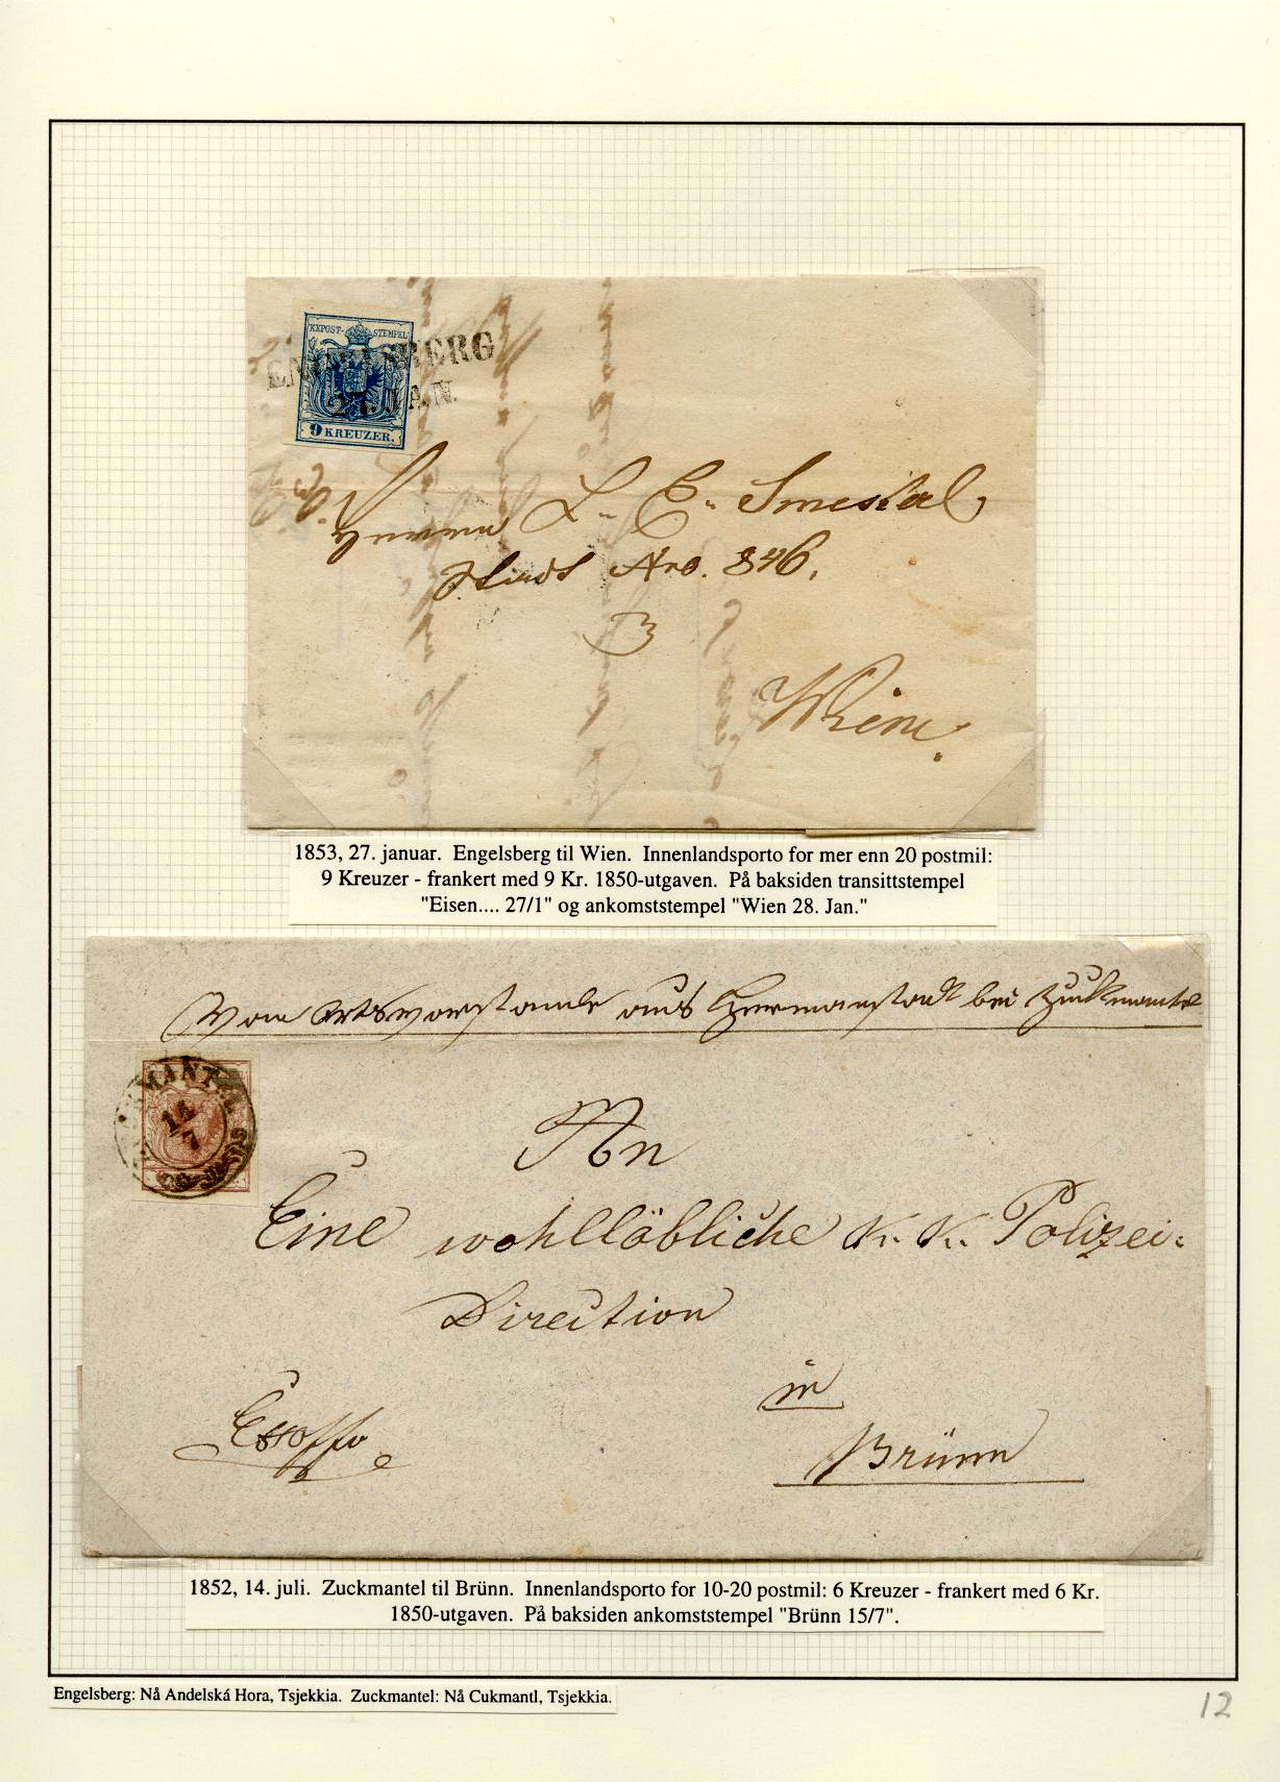 KKPOST-STEMPEL
ENGELSBERG
27. JAN.
9 KREUZER.
Herrn L. E. Smestal
Stadt Nro. 846.
Wien.
1853, 27. januar. Engelsberg til Wien. Innenlandsporto for mer enn 20 postmil:
9 Kreuzer - frankert med 9 Kr. 1850-utgaven. På baksiden transittstempel
"Eisen.... 27/1" og ankomststempel "Wien 28. Jan."
Vom Ortsvorstande aus Hermanstadt bei Zuckmantel
14/7
An
Eine wohllöbliche K. K. Polizei-
Direction
in
Brünn
1852, 14. juli. Zuckmantel til Brünn. Innenlandsporto for 10-20 postmil: 6 Kreuzer - frankert med 6 Kr.
1850-utgaven. På baksiden ankomststempel "Brünn 15/7".
Engelsberg: Nå Andelská Hora, Tsjekkia. Zuckmantel: Nå Cukmantl, Tsjekkia.
12